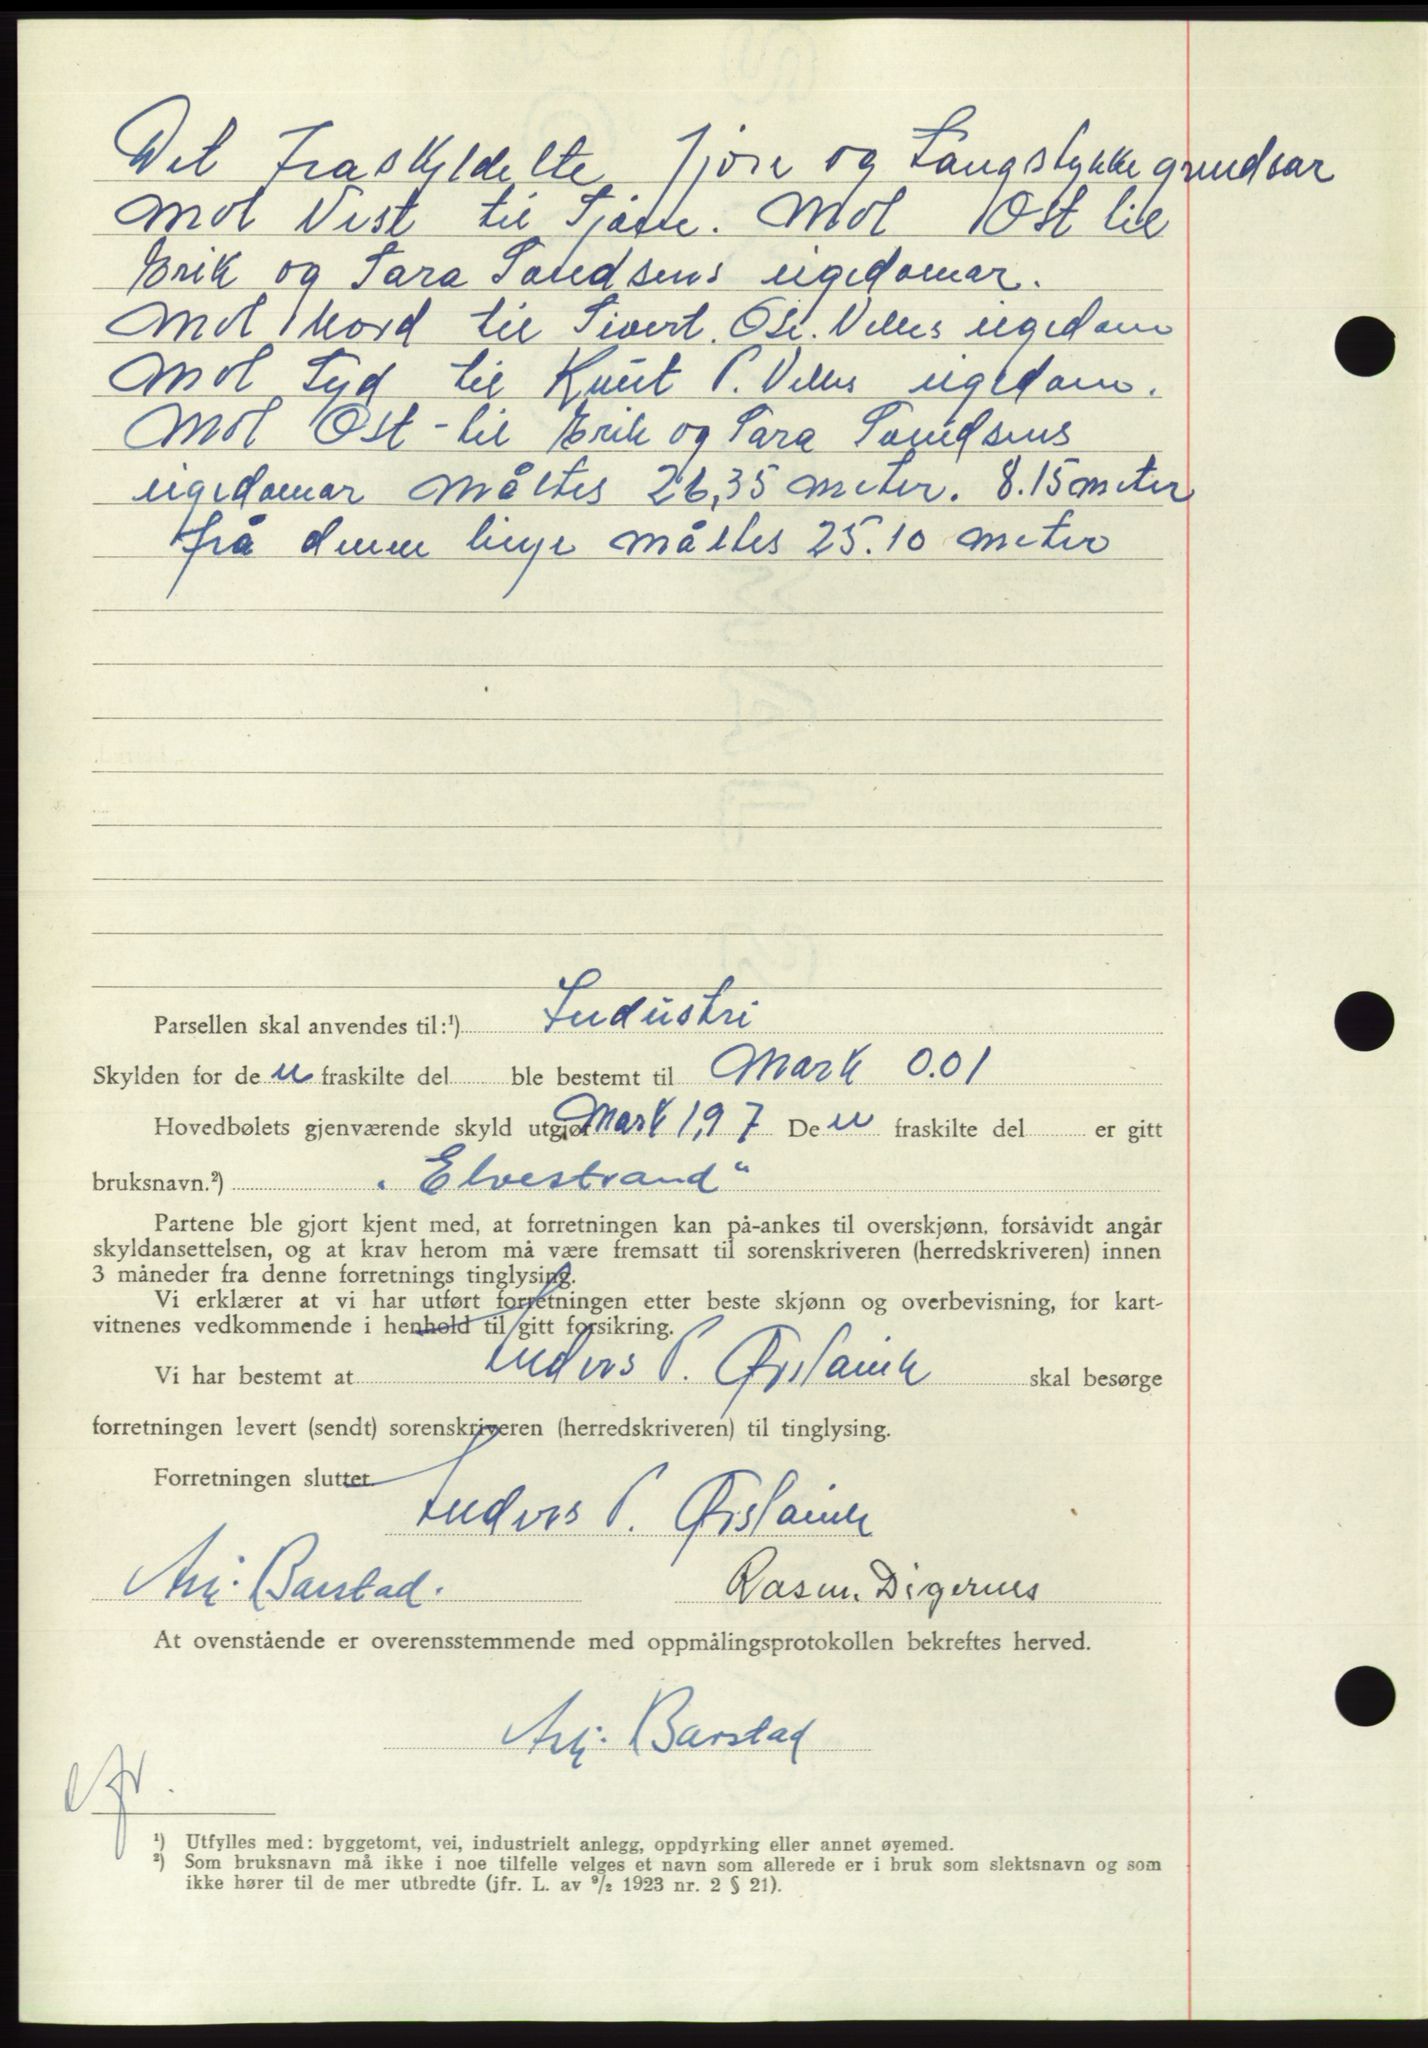 Det fraskyldelte fjøre og Langstykke grendsar
mot Vest til Sjøen. Mot Øst til
Erik og Sara Sandsens eigedomar.
Mot Nord til Sivert. Ose. Velles eigedom
Mot Syd til Knut P. Velles eigedom.
Mot Øst - til Erik og Sara Sandsens
eigedomar måltes 26,35 meter. 8.15 meter
frå denne linje måltes 25.10 meter
Parsellen skal anvendes til:¹) Industri
Skylden for den fraskilte del ble bestemt til Mark 0.01
Hovedbølets gjenværende skyld utgjør Mark 1,97 Den fraskilte del er gitt
bruksnavn.²) „Elvestrand“
Partene ble gjort kjent med, at forretningen kan på-ankes til overskjønn, forsåvidt angår
skyldansettelsen, og at krav herom må være fremsatt til sorenskriveren (herredskriveren) innen
3 måneder fra denne forretnings tinglysing.
Vi erklærer at vi har utført forretningen etter beste skjønn og overbevisning, for kart-
vitnenes vedkommende i henhold til gitt forsikring.
Vi har bestemt at Anders P. Ørslavik skal besørge
forretningen levert (sendt) sorenskriveren (herredskriveren) til tinglysing.
Forretningen sluttet.
Anders P. Ørslavik
Barstad. Rasm. Digernes
At ovenstående er overensstemmende med oppmålingsprotokollen bekreftes herved.
Barstad
¹) Utfylles med: byggetomt, vei, industrielt anlegg, oppdyrking eller annet øyemed.
²) Som bruksnavn må ikke i noe tilfelle velges et navn som allerede er i bruk som slektsnavn og som
ikke hører til de mer utbredte (jfr. L. av ⁹/₂ 1923 nr. 2 § 21).